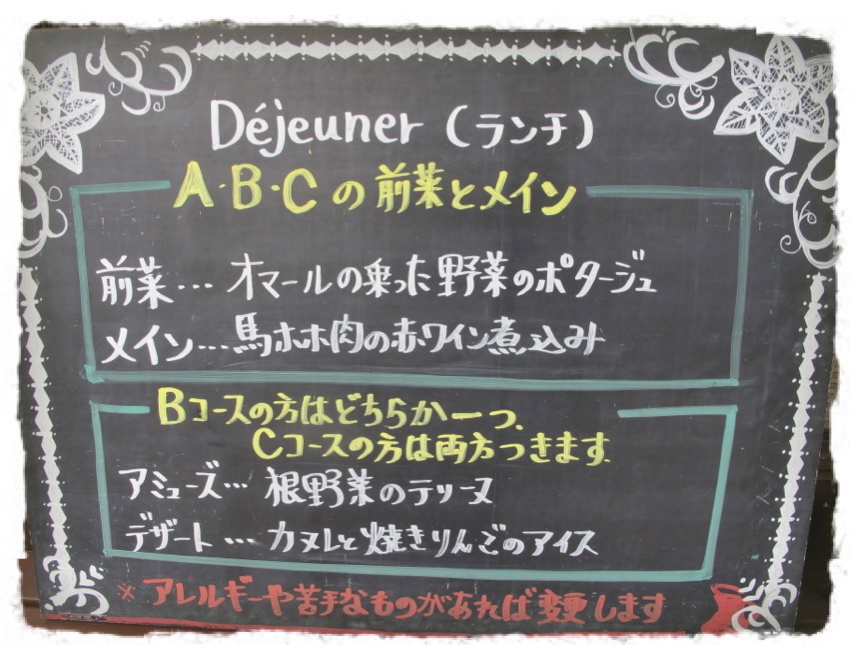 Déjeuner (ランチ)
A·B·Cの前菜とメイン
前菜…オマールの乗った野菜のポタージュ
メイン…馬ホホ肉の赤ワイン煮込み
Bコースの方はどちらか一つ、
Cコースの方は両方つきます
アミューズ…根野菜のテリーヌ
デザート…カヌレと焼きりんごのアイス
※アレルギーや苦手なものがあれば変更します